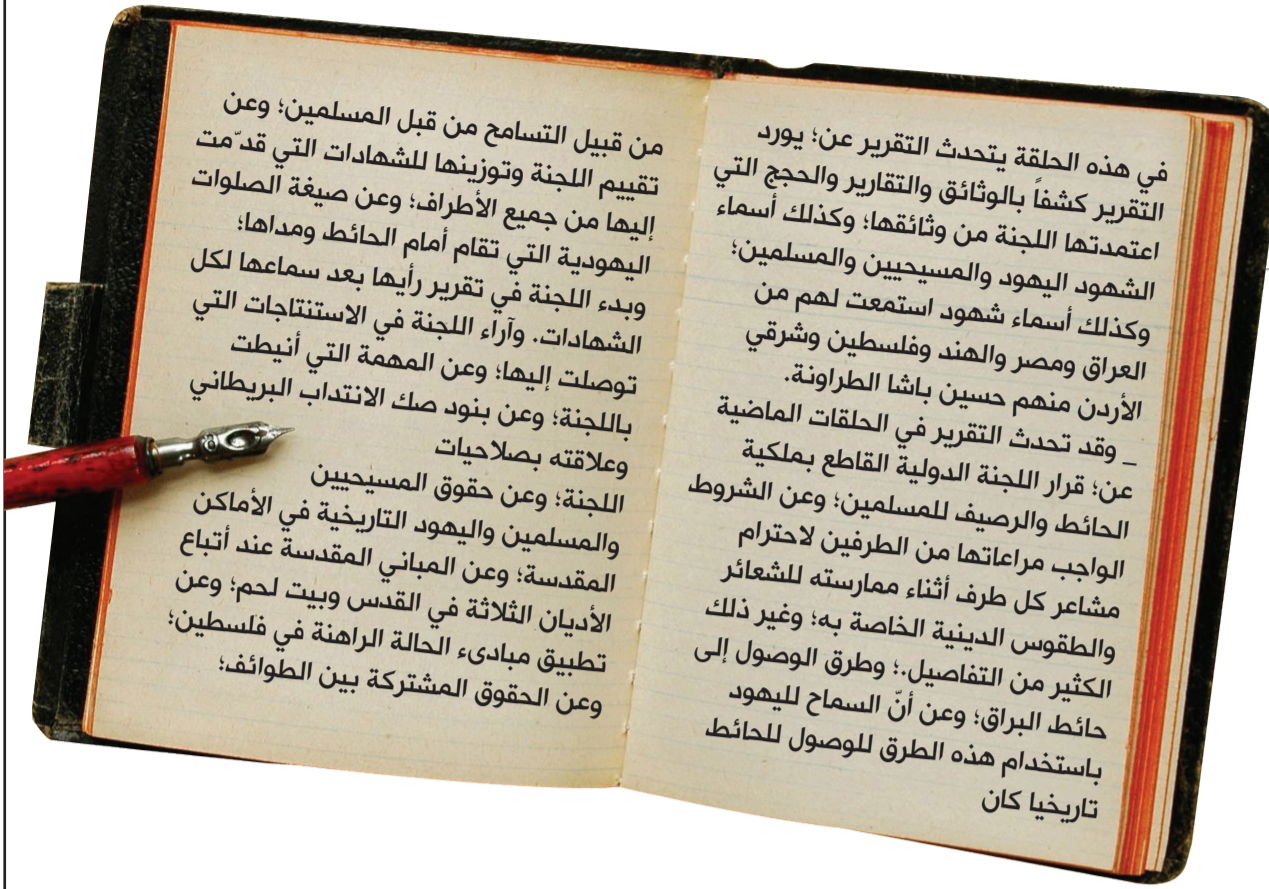 في هذه الحلقة يتحدث التقرير عن؛ يورد
التقرير كشفاً بالوثائق والتقارير والحجج التي
اعتمدتها اللجنة من وثائقها؛ وكذلك أسماء
الشهود اليهود والمسيحيين والمسلمين؛
وكذلك أسماء شهود استمعت لهم من
العراق ومصر والهند وفلسطين وشرقي
الأردن منهم حسين باشا الطراونة.
_ وقد تحدث التقرير في الحلقات الماضية
عن؛ قرار اللجنة الدولية القاطع بملكية
الحائط والرصيف للمسلمين؛ وعن الشروط
الواجب مراعاتها من الطرفين لاحترام
مشاعر كل طرف أثناء ممارسته للشعائر
والطقوس الدينية الخاصة به؛ وغير ذلك
الكثير من التفاصيل.؛ وطرق الوصول إلى
حائط البراق؛ وعن أنّ السماح لليهود
باستخدام هذه الطرق للوصول للحائط
تاريخيا كان
من قبيل التسامح من قبل المسلمين؛ وعن
تقييم اللجنة وتوزينها للشهادات التي قدّمت
إليها من جميع الأطراف؛ وعن صيغة الصلوات
اليهودية التي تقام أمام الحائط ومداها؛
وبدء اللجنة في تقرير رأيها بعد سماعها لكل
الشهادات. وآراء اللجنة في الاستنتاجات التي
توصلت إليها؛ وعن المهمة التي أنيطت
باللجنة؛ وعن بنود صك الانتداب البريطاني
وعلاقته بصلاحيات
اللجنة؛ وعن حقوق المسيحيين
والمسلمين واليهود التاريخية في الأماكن
المقدسة؛ وعن المباني المقدسة عند أتباع
الأديان الثلاثة في القدس وبيت لحم؛ وعن
تطبيق مبادىء الحالة الراهنة في فلسطين؛
وعن الحقوق المشتركة بين الطوائف؛